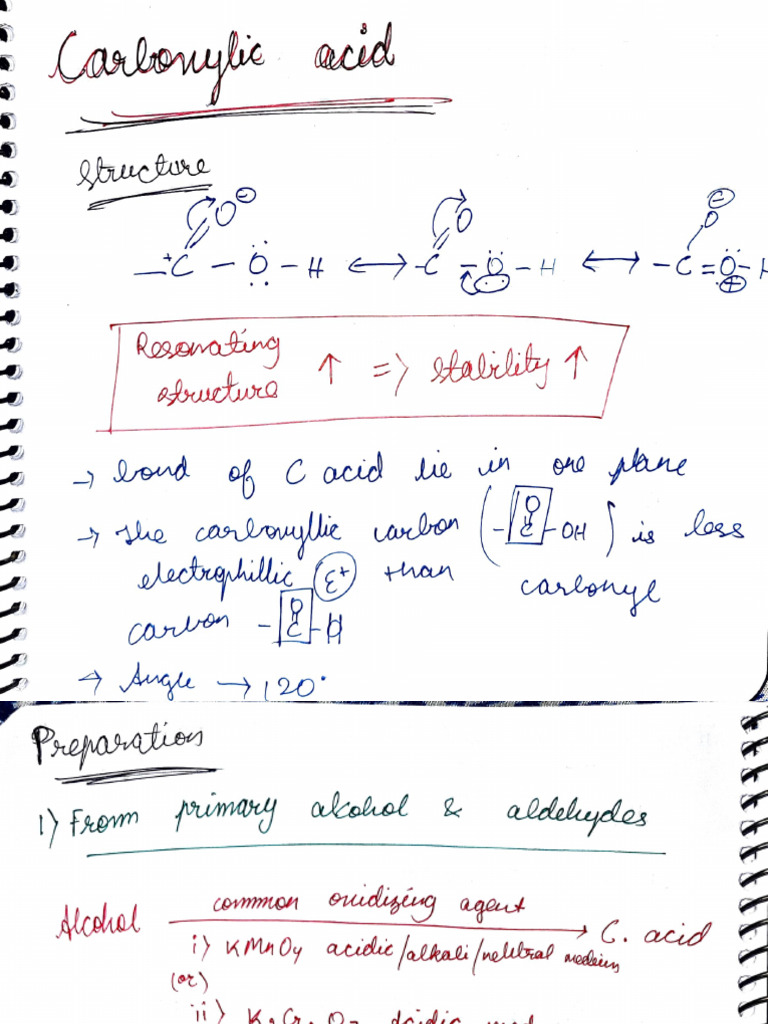 Carboxylic acid
Structure
⁺C – Ö – H ⟷ –C – Ö – H ⟷ – C = Ö – H
Resonating structure ↑ => stability ↑
→ bond of C acid lie in one plane
→ The carboxyllic carbon ( – C – OH ) is less
electrophillic (E⁺) than carbonyl
carbon – C –
→ Angle → 120°
Preparation
1) From primary alcohol & aldehydes
Alcohol common oxidizing agent → C. acid
i) KMnO4 acidic/alkali/neutral medium
(or)
ii) K2Cr2O7 acidic med